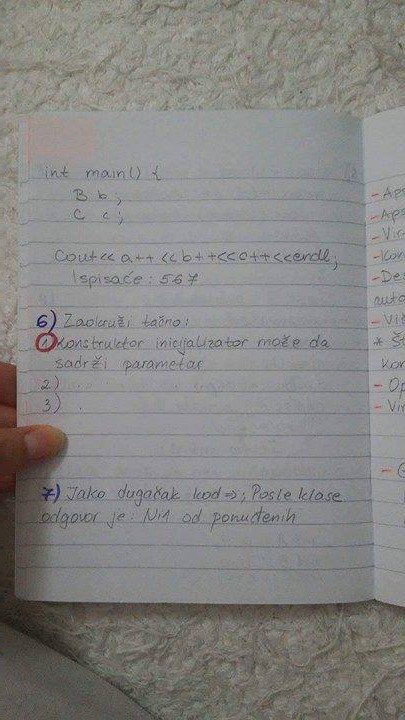 int main() {
B b;
C c;
Cout<< a++ <<b++<<c++<<endl;
Ispisaće: 567
6) Zaokruži tačno:
1) Konstruktor inicijalizator može da
sadrži parametar
2)
3)
7) Jako dugačak kod =>; Posle klase
odgovor je: Ni1 od ponuđenih
- Aps
- Aps
- Vir
- Kon
- Des
auto
- Vi
* Št
kon
- Op
- Vir